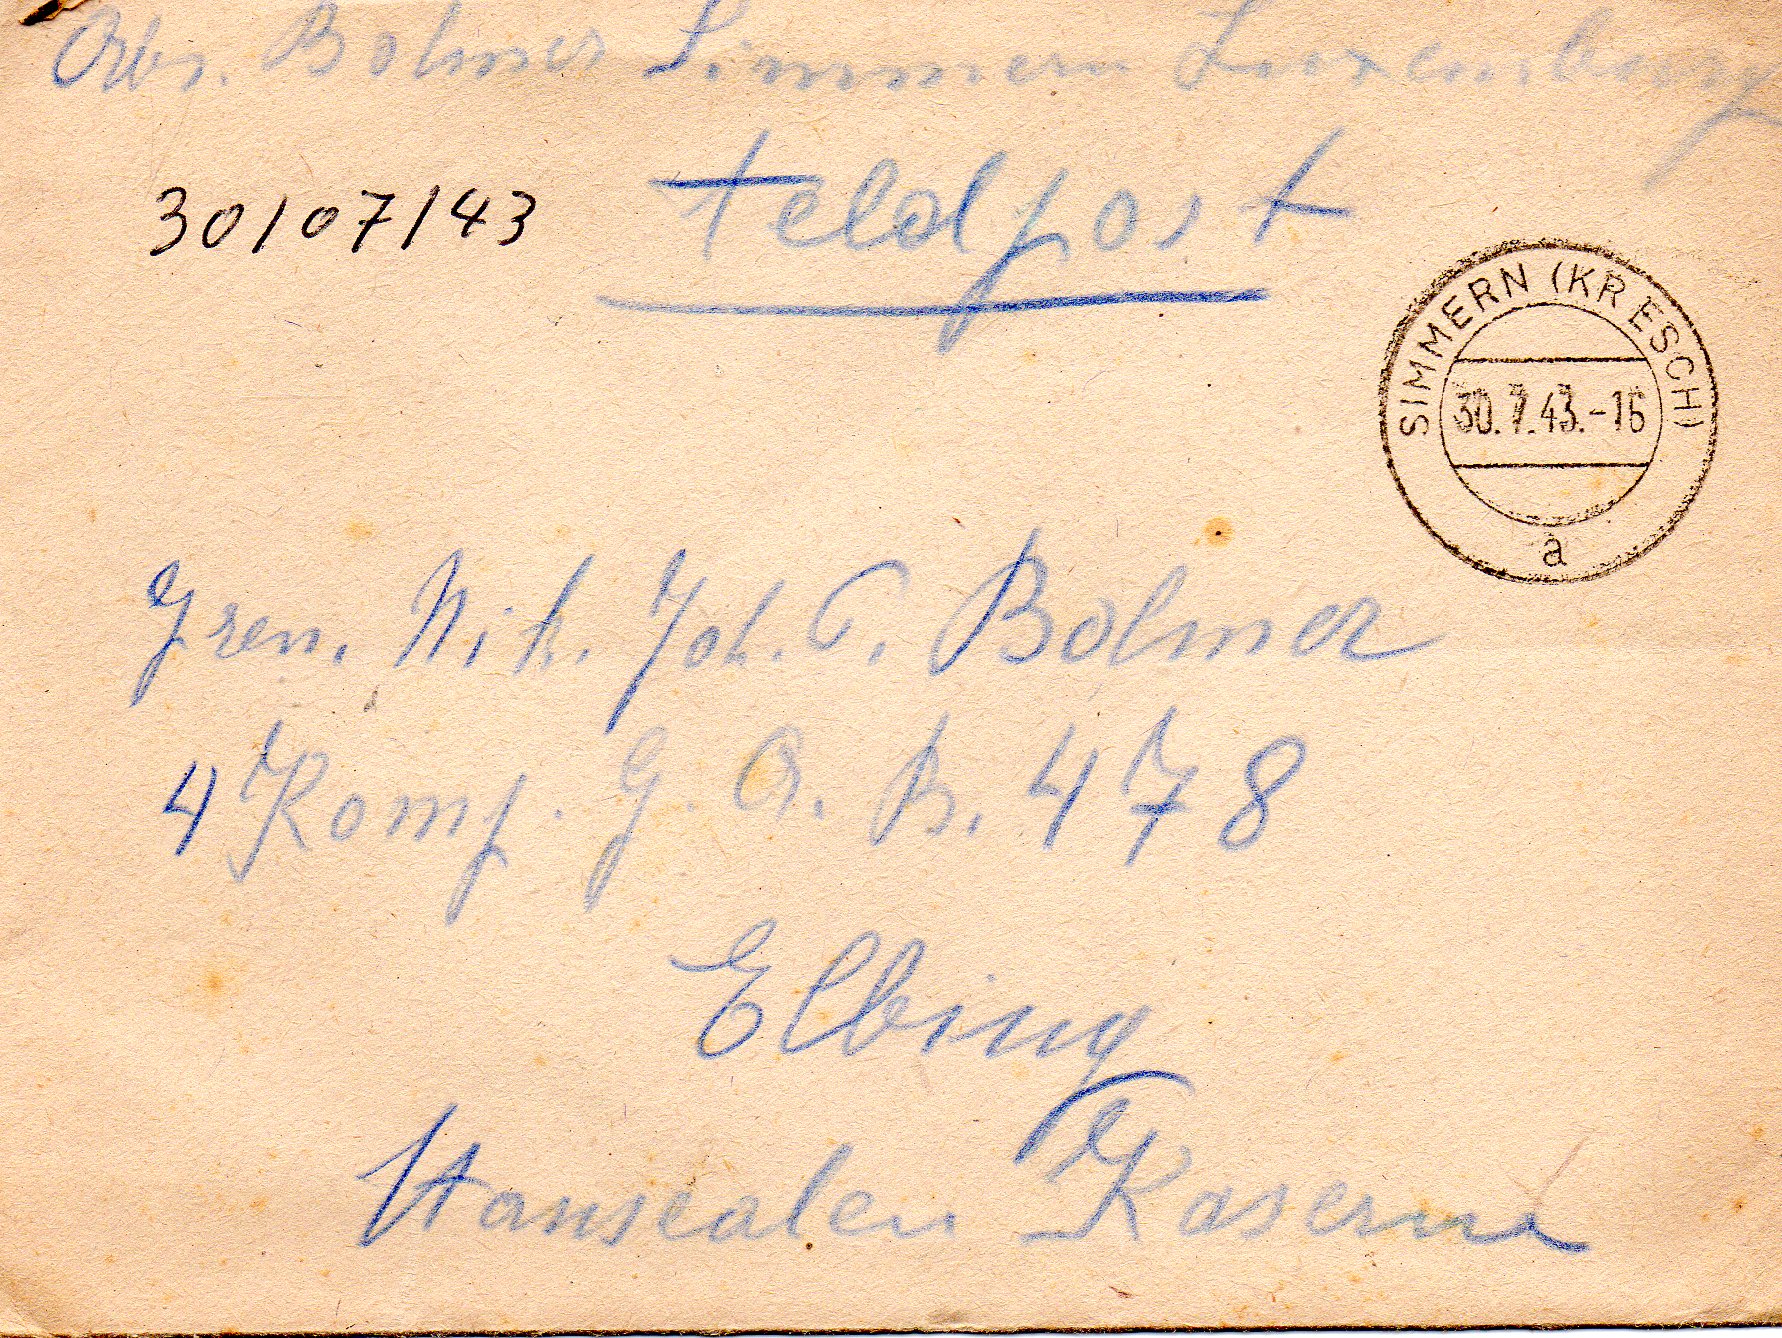 Abs. Bohmer Simmern Luxemburg
30/07/43
Feldpost
SIMMERN (KR ESCH)
30.7.43.-16
a
Gren. Nik. Joh. P. Bohmer
4 Komp. G. A. B. 478
Elbing
Hansealen Kaserne